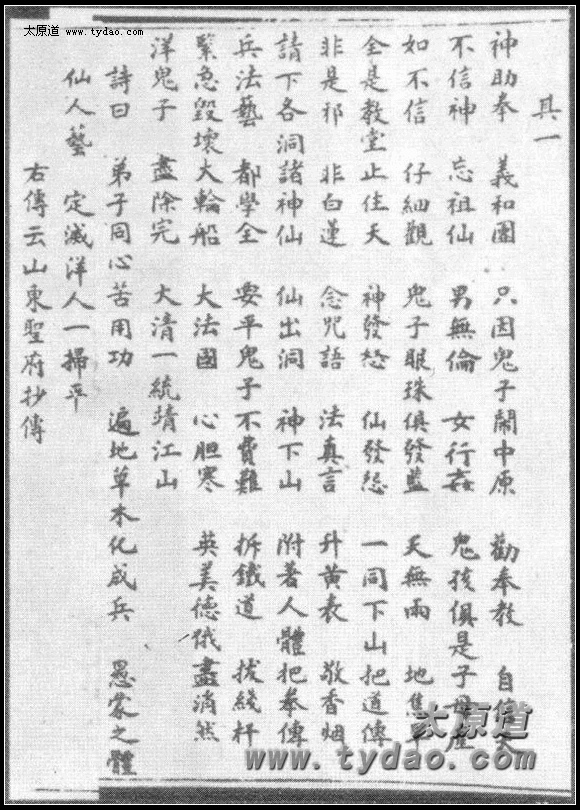 太原道 www.tydao.com
其一
神助拳 義和團 只因鬼子鬧中原 勸奉教 自信天
不信神 忘祖仙 男無倫 女行姦 鬼孩俱是子母產
如不信 仔細觀 鬼子眼珠俱發藍 天無雨 地焦
全是教堂止住天 神發怒 仙發怨 一同下山把道傳
非是邪 非白蓮 念咒語 法真言 升黃表 敬香烟
請下各洞諸神仙 仙出洞 神下山 附著人體把拳傳
兵法藝 都學全 要平鬼子不費難 拆鐵道 拔綫杆
緊急毀壞大輪船 大法國 心胆寒 英美德俄盡消然
洋鬼子 盡除完 大清一統靖江山
詩曰 弟子同心苦用功 遍地草木化成兵 愚蒙之體
仙人藝 定滅洋人一掃平
右傳云山東聖府抄傳
太原道
www.tydao.com